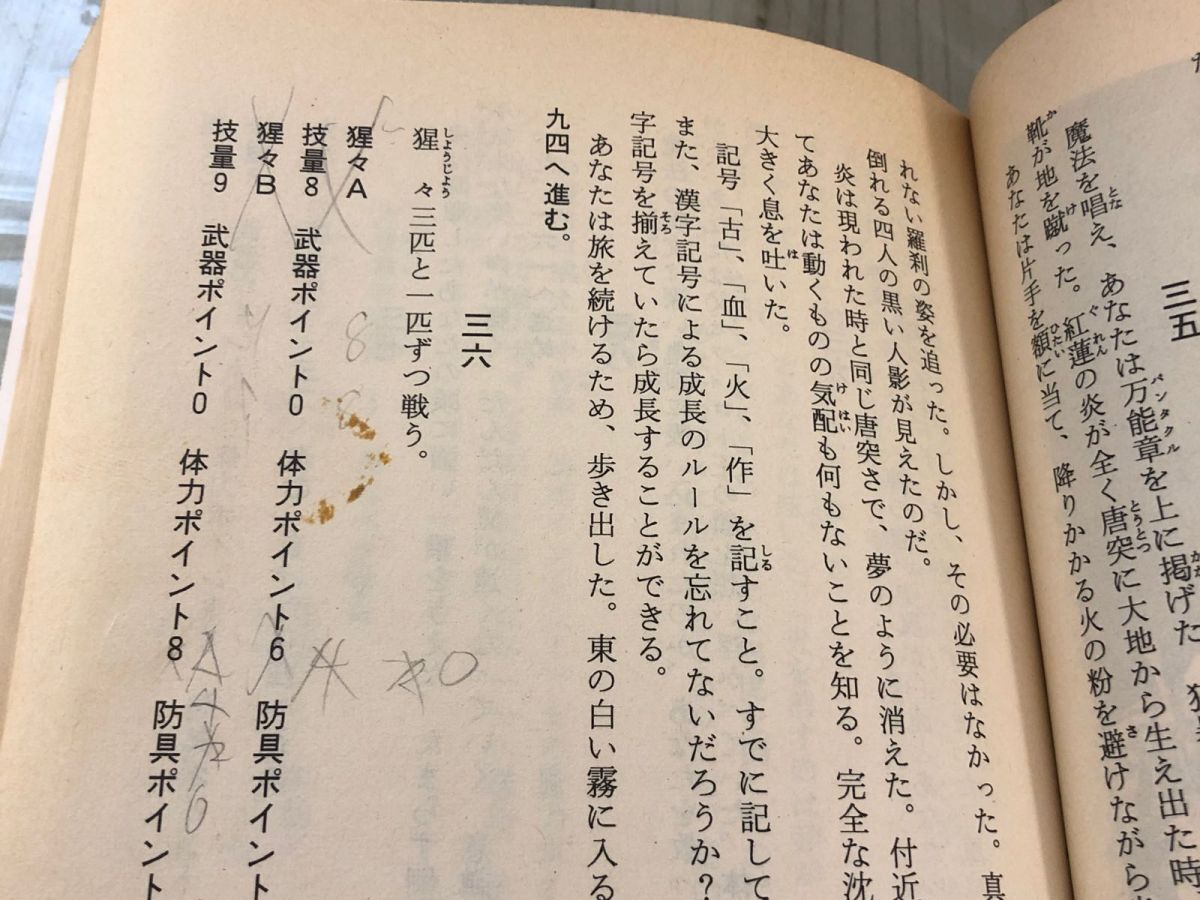 三五
魔法を唱え、あなたは万能章を上に掲げた
靴が地を蹴った。紅蓮の炎が全く唐突に大地から生え出た時
あなたは片手を額に当て、降りかかる火の粉を避けながら
れない羅刹の姿を追った。しかし、その必要はなかった。真
倒れる四人の黒い人影が見えたのだ。
炎は現われた時と同じ唐突さで、夢のように消えた。付近
てあなたは動くものの気配も何もないことを知る。完全な沈
大きく息を吐いた。
記号「古」、「血」、「火」、「作」を記すこと。すでに記して
また、漢字記号による成長のルールを忘れてないだろうか？
字記号を揃えていたら成長することができる。
あなたは旅を続けるため、歩き出した。東の白い霧に入る
九四へ進む。
三六
猩々三匹と一匹ずつ戦う。
猩々A
技量8 武器ポイント0 体力ポイント6 防具ポイント
猩々B
技量9 武器ポイント0 体力ポイント8 防具ポイント